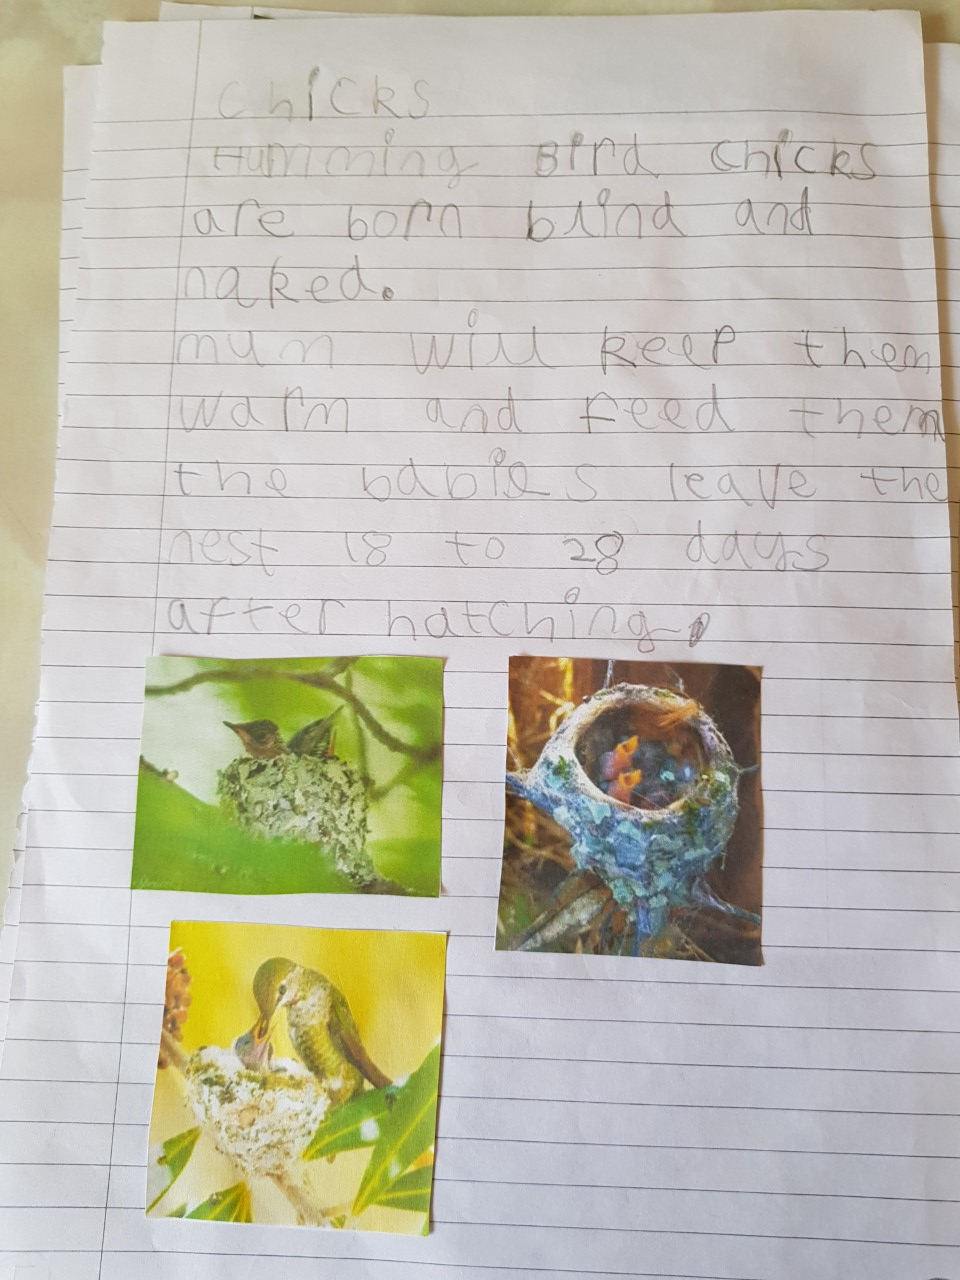 chicks
Humming Bird chicks
are born blind and
naked.
mum will keep them
warm and feed them
the babies leave the
nest 18 to 28 days
after hatching.